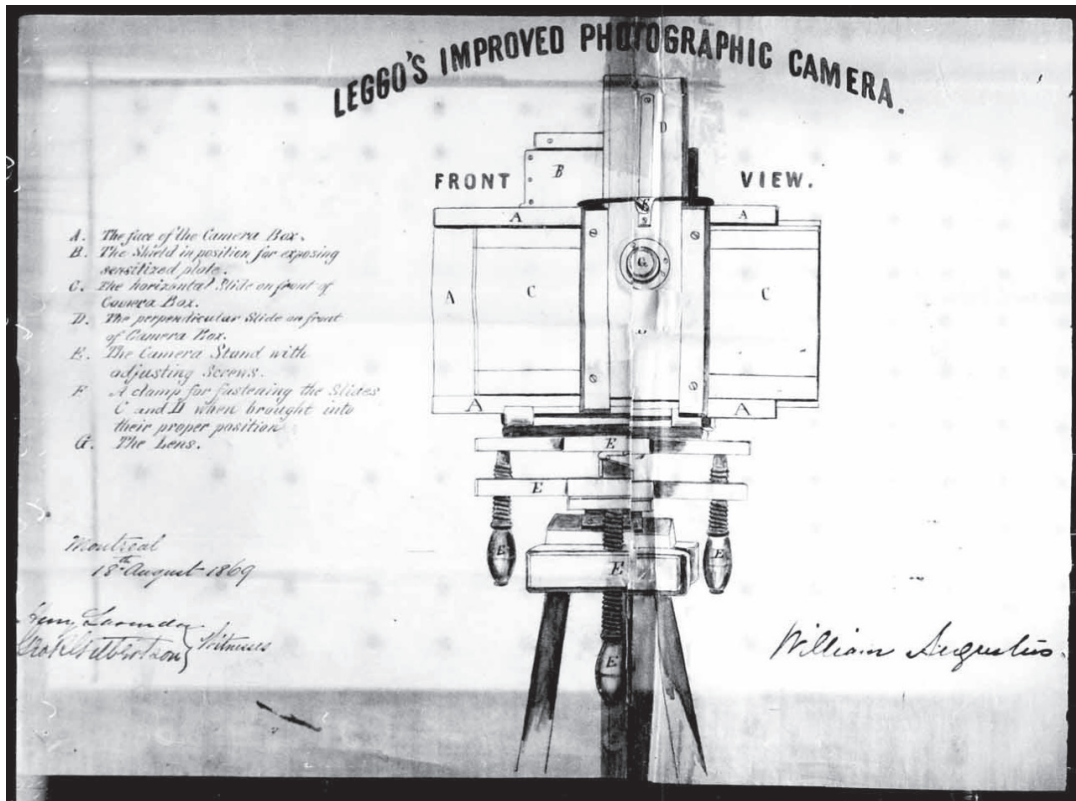 LEGGO'S IMPROVED PHOTOGRAPHIC CAMERA.
FRONT VIEW.
A. The face of the Camera Box.
B. The Shield in position for exposing
sensitized plate.
C. The horizontal Slide on front of
Camera Box.
D. The perpendicular Slide on front
of Camera Box.
E. The Camera Stand with
adjusting Screws.
F. A clamp for fastening the Slides
C and D when brought into
their proper position
G. The Lens.
D
B
F
A
A
G
A
C
C
A
A
E
E
E
E
E
E
Montreal
18th August 1869
Henry
Witnesses
William Augustus